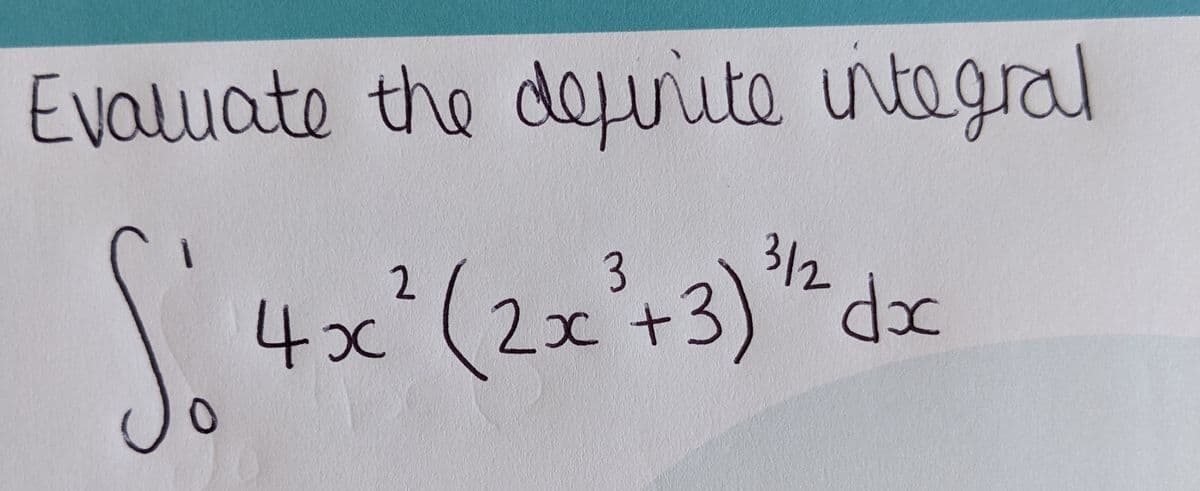 Evaluate the definite integral
∫₀¹ 4x²(2x³+3)^(3/2) dx